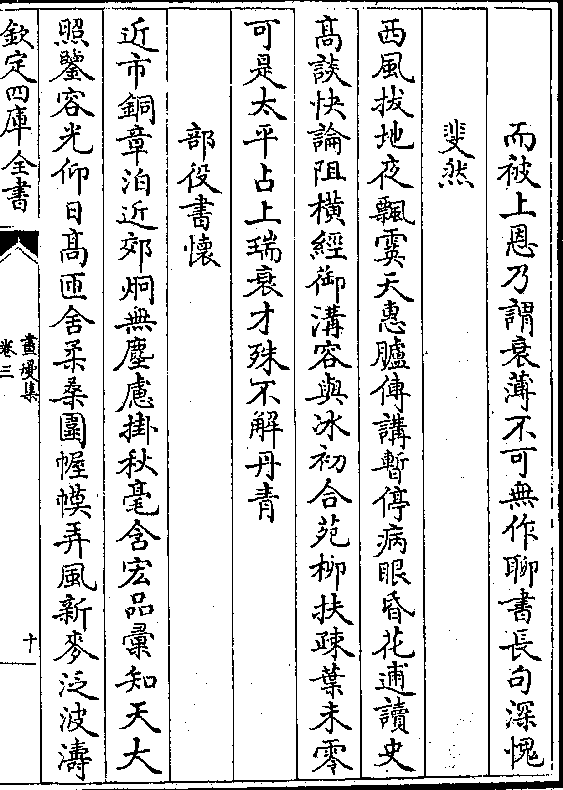 而被上恩乃謂衰薄不可無作聊書長句深愧
斐然
西風拔地夜飄霙天惠臚傳講暫停病眼昏花逋讀史
髙談快論阻横經御溝容與冰初合苑柳扶疎葉未零
可是太平占上瑞衰才殊不解丹青
部役書懷
近市銅章泊近郊炯無塵慮掛秋毫含宏品彚知天大
照鑒容光仰日髙匝舍柔桑圍幄幙弄風新麥泛波濤
欽定四庫全書
畫墁集
卷三
十